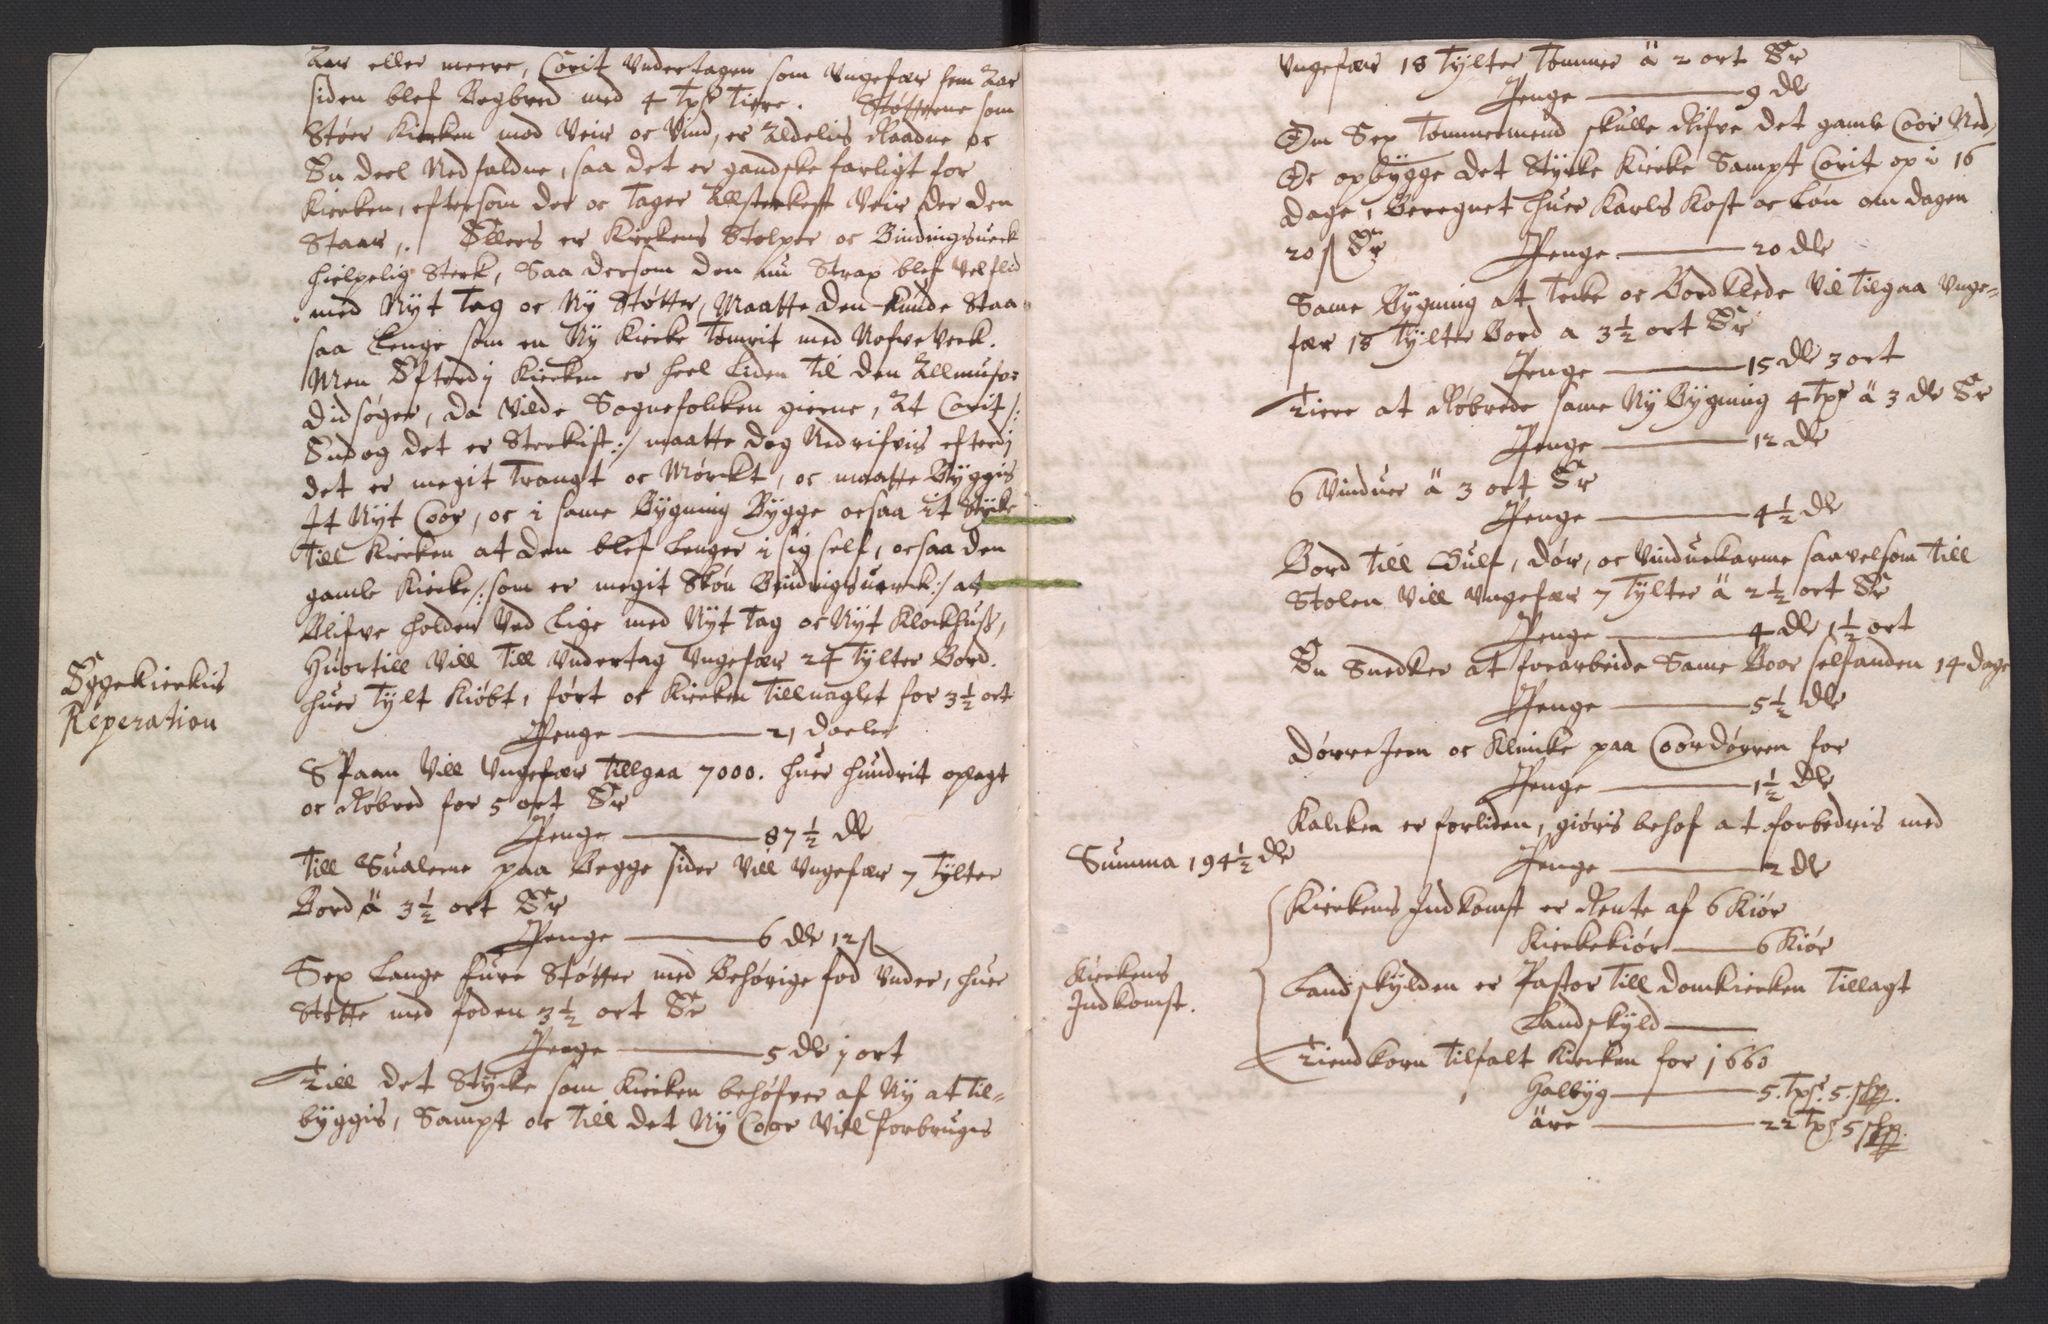 Aar eller meere, Corit Undertagen som Ungefær fem Aar
siden blef Begbred med 4 Tpr Tiere. Støtterne som
Støer Kircken mod Veir oc Vind, er Aldelis Raadne oc
En deel Nedfaldne, saa det er gandske farligt for
Kircken, eftersom der oc Tager Allsterkest Veir der den
Staar,. Ellers er Kirckens Stolper oc Bindingsverck
hielpelig Sterk, Saa dersom den nu Strax blef Vel flid
med Nyt Tag oc Ny Støtter, Maatte den kunde Staa
saa Lenge som en Ny Kircke Tømrit med Nofveverk.
Men Efterdj Kircken er heel Liden Til den Allmufve
didsøger, da Vilde Sognefolcken gierne, At Corit /:
Endog det er Sterkist :/ maatte dog Nedrifvis efterdj
det er megit Trangt oc Mørckt, oc maatte Byggis
It Nyt Coor, oc i same Bygning Bygge ocsaa it Stycke
Till Kircken at den blef Lenger i sig self, ocsaa den
gamle Kircke /: som er megit Skøn Bindingsverck :/ at
Blifve holden Ved Lige med Nyt Tag oc Nyt Klockhuss,
Huortill Vill Till Undertag Ungefær 24 Tylter Bord.
huer Tylt Kiøbt, ført oc Kircken Tillnaglet for 3½ ort
Penge ——— 21 daeler
Eggekirckis
Reperation
Spaan Vill Ungefær Tillgaa 7000. huer hundrit oplagt
oc Røbred for 5 ort Er
Penge ——— 87½ dlr
Till Sualerne paa Begge sider Vill Ungefær 7 Tylter
Bord ä 3½ ort Er
Penge ——— 6 dlr 12 s
Sex Lange fure Støtter med Behørige fod Under, huer
Støtte med foden 3½ ort Er
Penge ——— 5 dlr 1 ort
Till det Stycke som Kircken behøfver af Ny at Til-
byggis, Sampt oc Till det Ny Coor Vill forbrugis
Ungefær 18 Tylter Tømmer ä 2 ort Er
Penge ——— 9 dlr
Om Sex Tømmermend skulle Rifve det gamle Coor Ned,
Oc opbygge det Stycke Kircke Sampt Corit op i 16
dage, Beregnet huer Karls Kost oc Løn om dagen
20 s Er Penge ——— 20 dlr
Same Bygning at Tecke oc Bordklede Vil Tilgaa Unge-
fær 18 Tylter Bord a 3½ ort Er
Penge ——— 15 dlr 3 ort
Tiere at Røbrede same Ny Bygning 4 Tpr ä 3 dlr Er
Penge ——— 12 dlr
6 Vinduer ä 3 ort Er
Penge ——— 4½ dlr
Bord Till Gulf, dør, oc Vinduekarme saavelsom Till
Stolen Vill Ungefær 7 Tylter ä 2½ ort Er
Penge ——— 4 dlr 1½ ort
En Snedker at forarbeide Same Boor selfanden 14 dage
Penge ——— 5½ dlr
Dørre Jern oc Klincke paa Coordørren for
Penge ——— 1½ dlr
Kalcken er forliden, giøris behof at forbedris med
Penge ——— 2 dlr
Summa 194½ dlr
Kirckens
Indkomst.
Kirckens Indkomst er Rente af 6 Kiør
Kirckekiør ——— 6 Kiør
Landskylden er Pastor Till Domkircken Tillagt
Landskyld ———
Tiendkorn Tilfalt Kircken for 1660
Halbyg ——— 5. Tpr. 5. skp.
äre ——— 22 Tpr 5 skp.